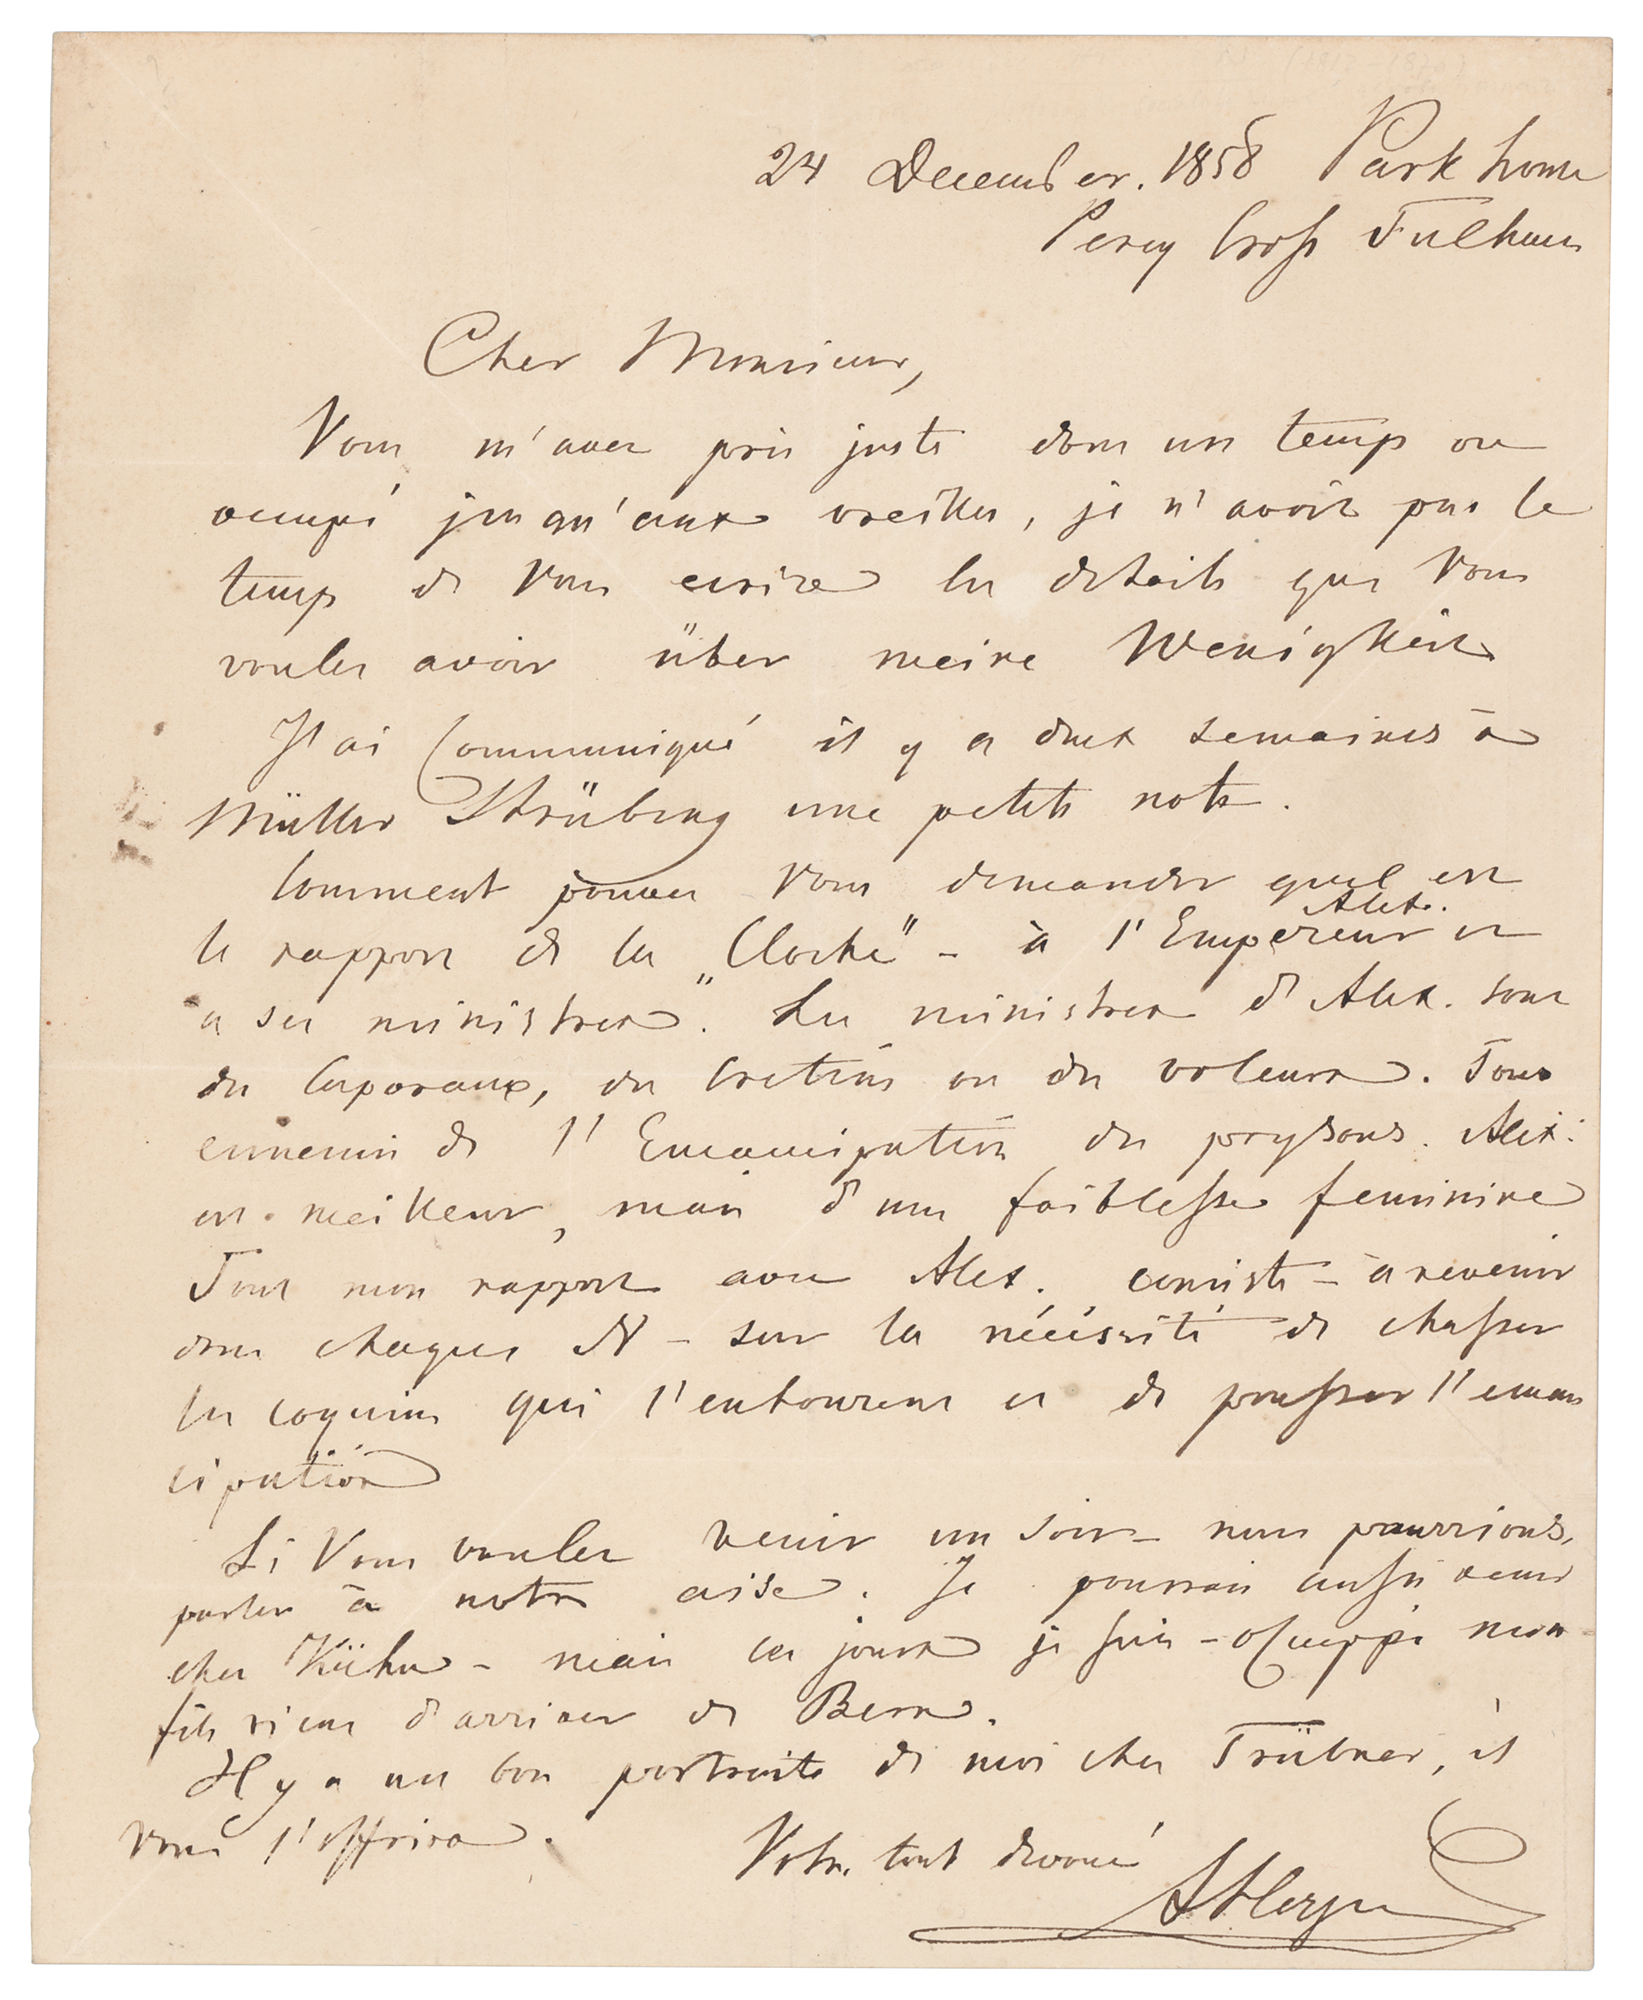 24 December. 1858 Park house
Percy Cross Fulham
Cher Monsieur,
Vous m'avez pris juste dans un temps ou
occupé jusqu'aux oreilles, je n'avais pas le
temps de Vous ecrire les details que Vous
voulez avoir über meine Wenigkeit
J'ai communiqué il y a deux semaines à
Müller Strübing une petite note.
Comment pouvez Vous demander quel est
le rapport de la „Cloche" – à l'Empereur Alex. et
a ses ministres". Les ministres d'Alex. sont
des caporaux, des cretins ou des voleurs. Tous
ennemis de l'Emancipation des paysans. Alex:
est meilleur, mais d'une faiblesse feminine
Tout mon rapport avec Alex. consiste – à revenir
dans chaque N – sur la nécéssité de chasser
les coquins qui l'entourent et de pousser l'eman
cipation
Si Vous voulez venir un soir – nous pourrions
parler à notre aise. Je pourrais aussi venir
chez Kühn – mais ces jours je suis – occuppé mon
fils vient d'arriver de Bern.
Il y a un bon portrait de moi chez Trübner, il
vous l'offrira.
Votre tout devoué
A Herzen